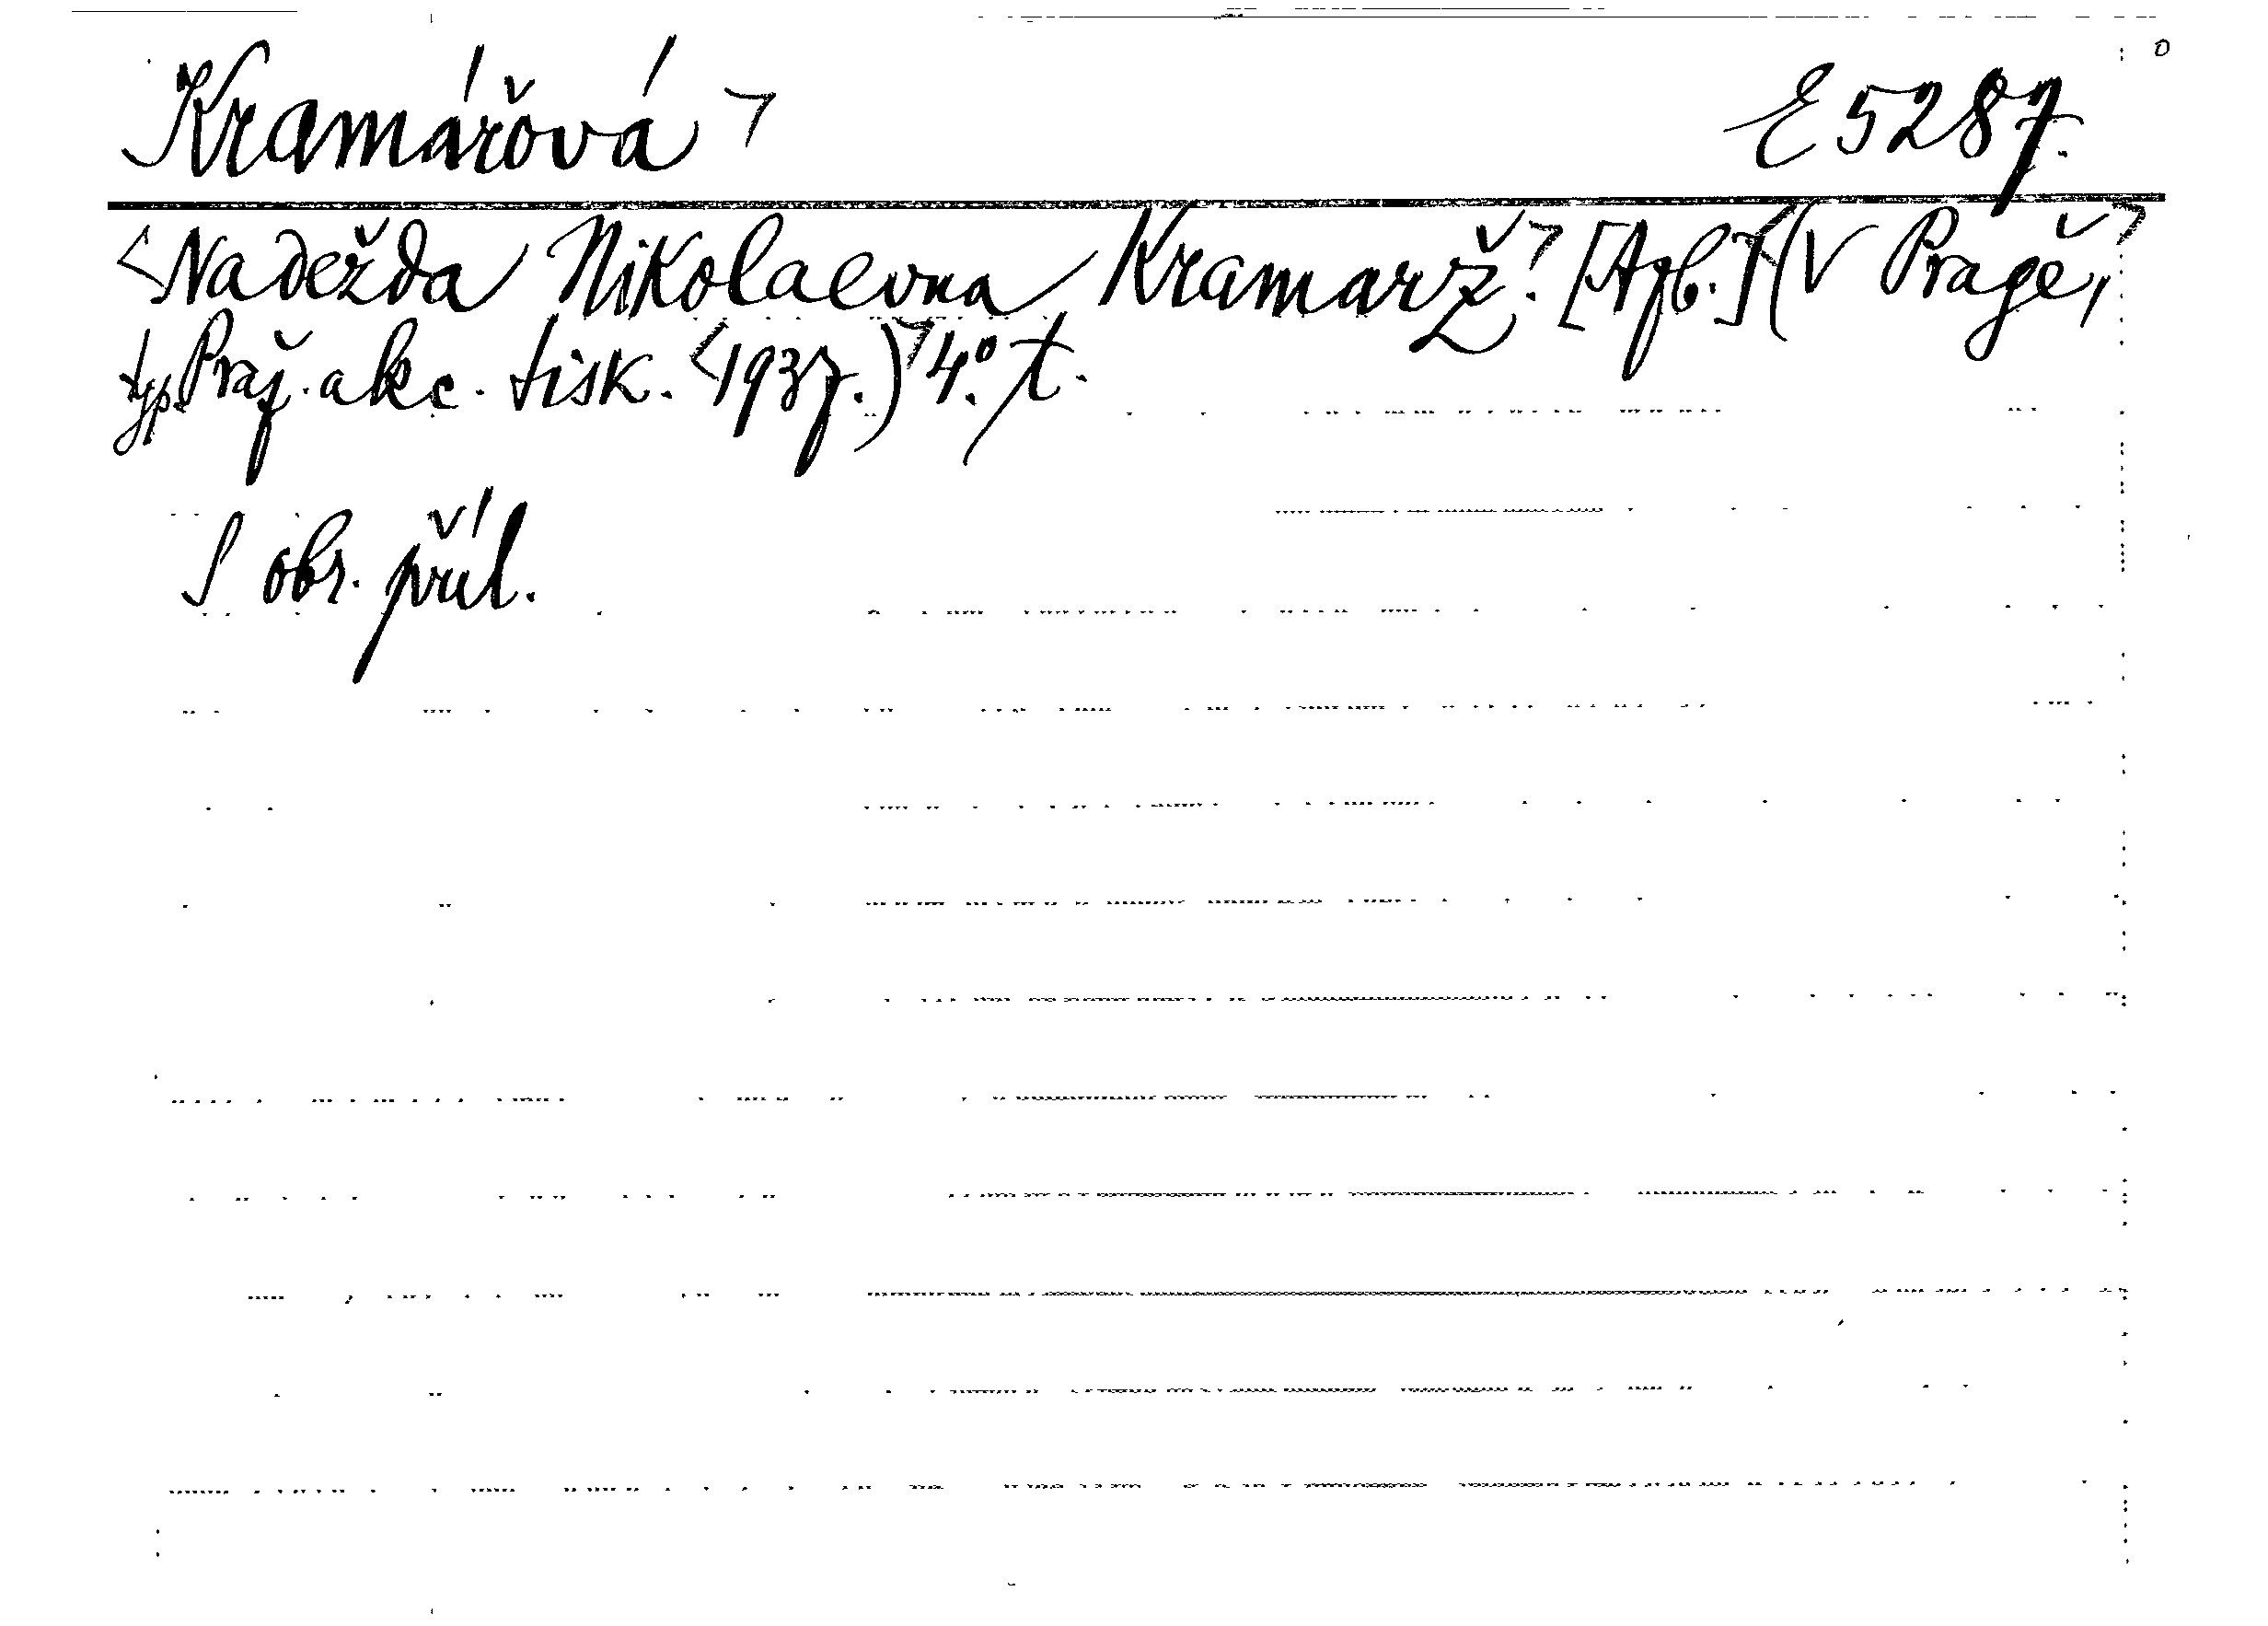 Kramářová > E 5287.
<Nadežda Nikolaevna Kramarž.> [Azb.] <(V Pragě,>
typ. Praž. akc. tisk. <1937.)> 4.° t.
S obr. příl.